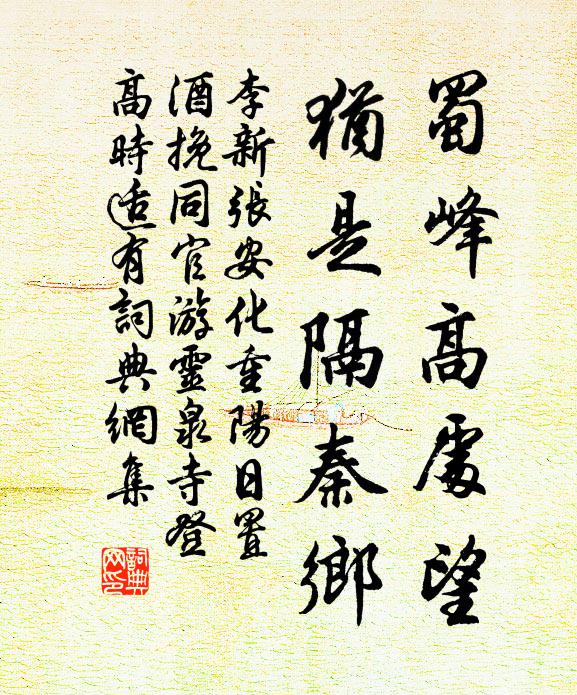 蜀峰高處望
猶是隔秦鄉
李新張安化重陽日置
酒挽同官游靈泉寺登
高時适有詞典網集
詞典
网印